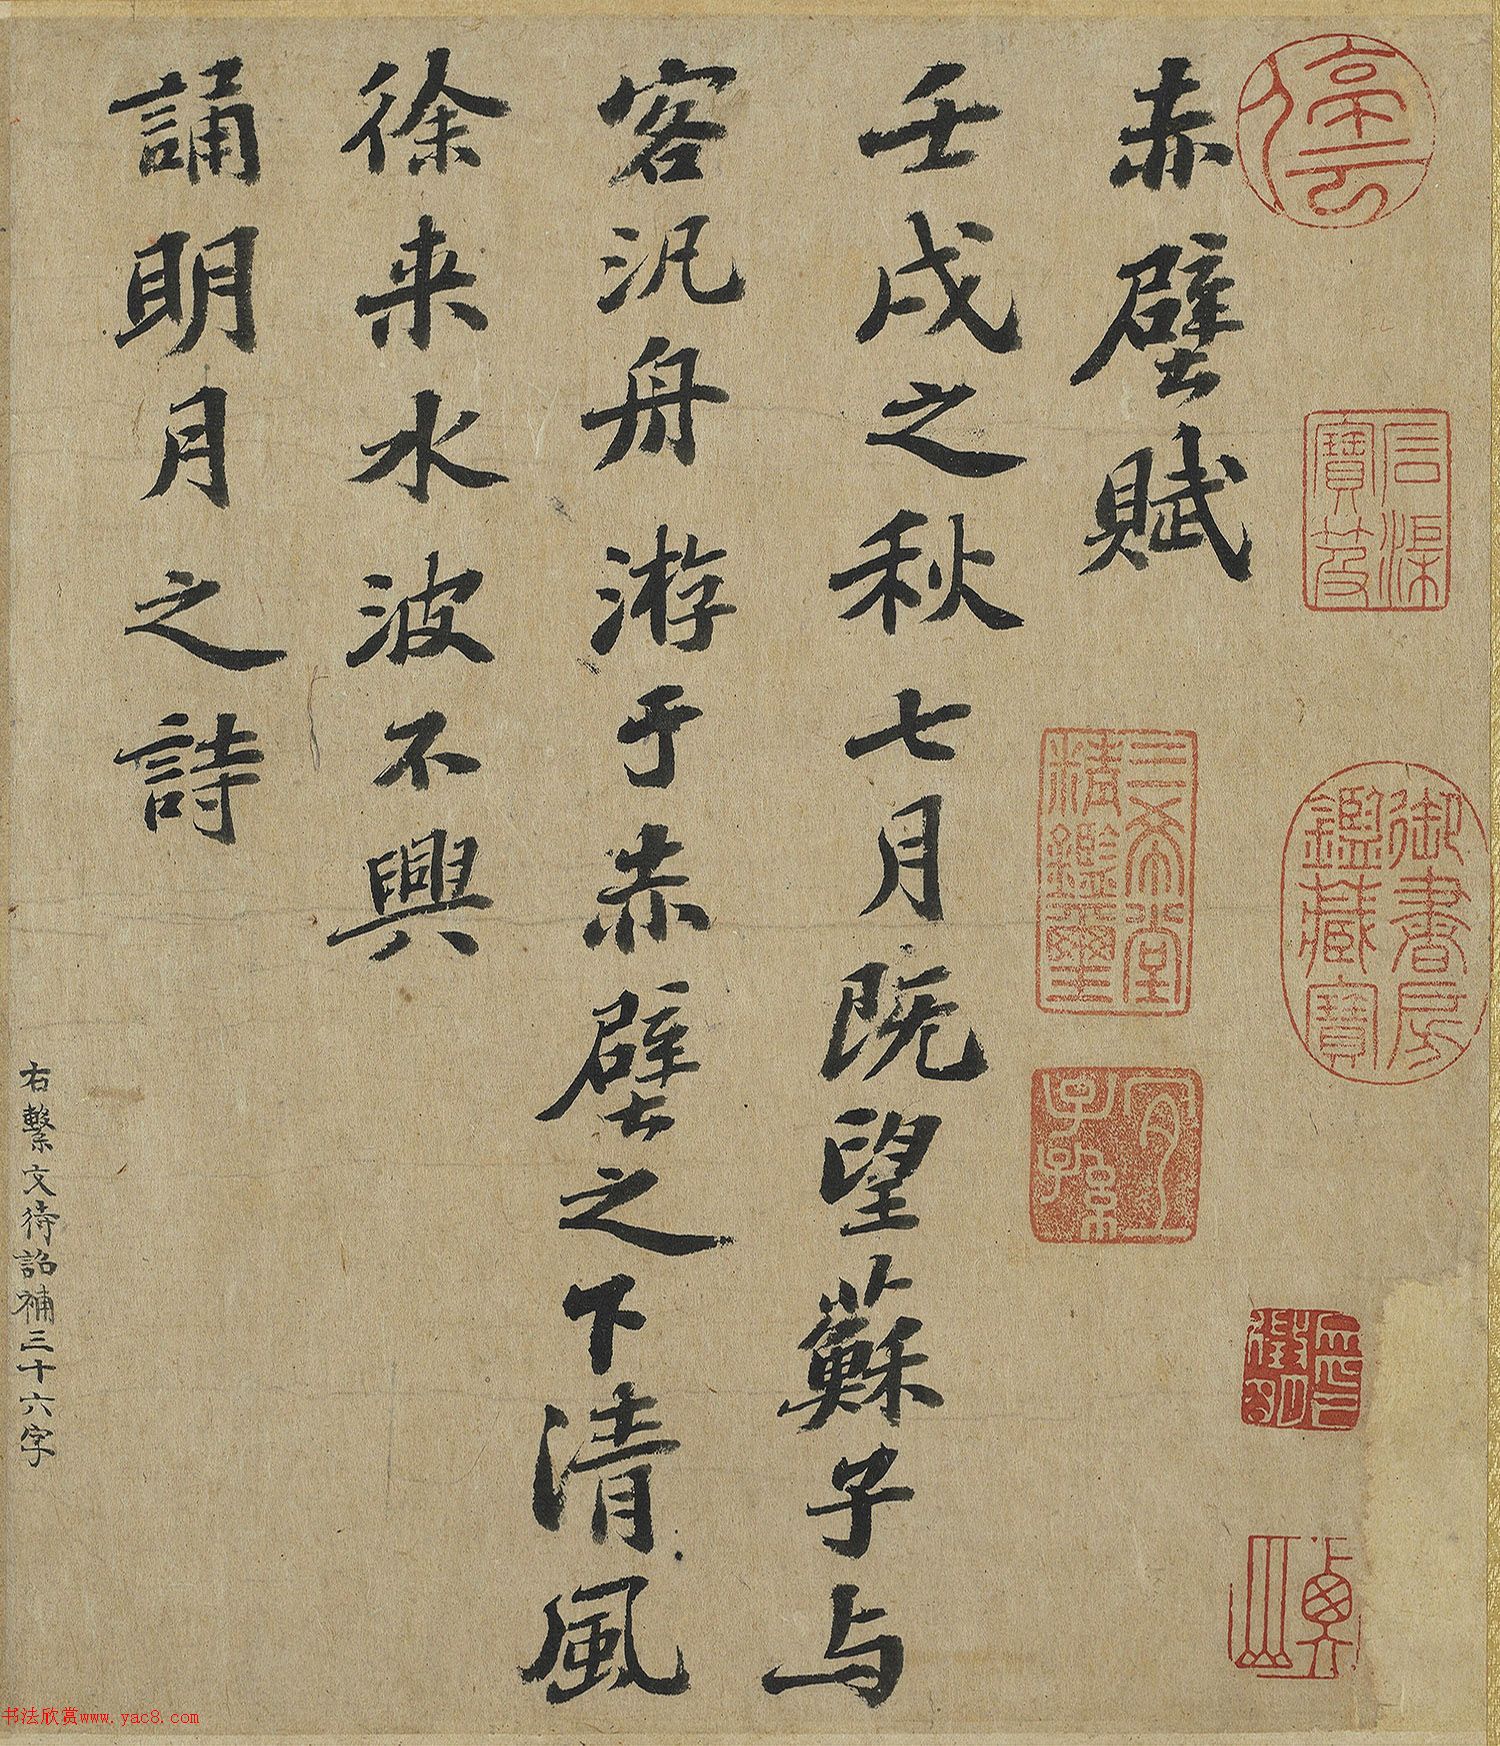 赤壁賦
壬戌之秋七月既望蘇子与
客汎舟游于赤壁之下清風
徐来水波不興
誦明月之詩
右繫文待詔補三十六字
三希堂精鑑璽
宜子孫
御書房鑑藏寶
书法欣赏www.yac8.com